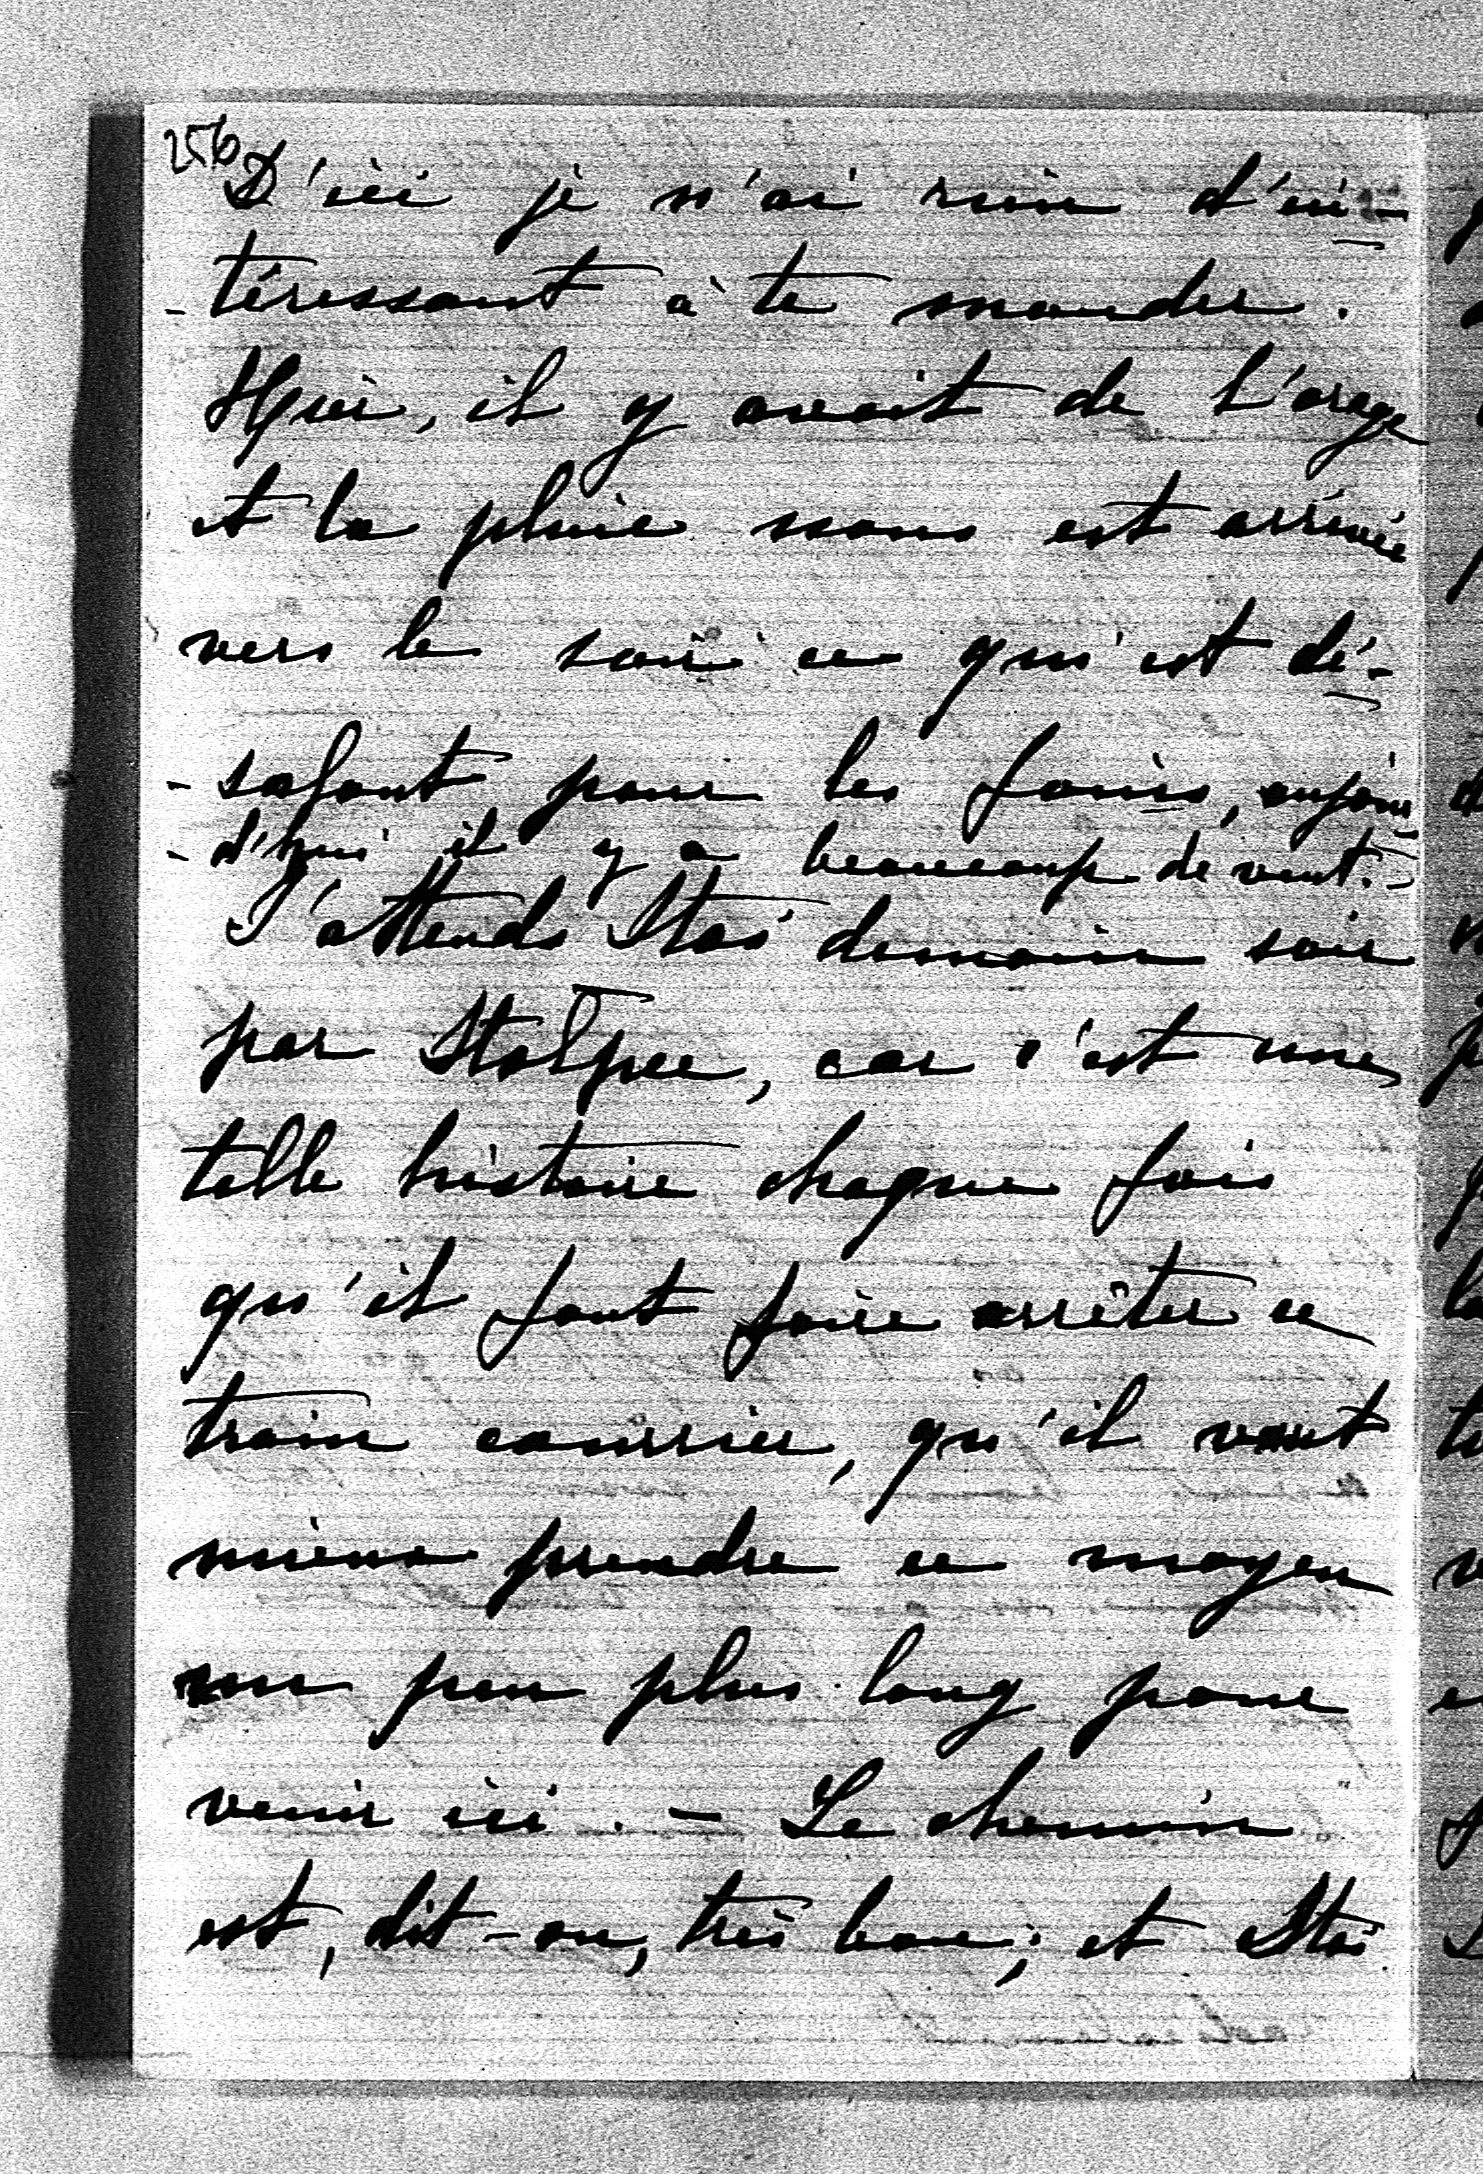 256
D'ici je n'ai rien d'in-
-téressant à te mander.
Hier, il y avait de l'orage
et la pluie nous est arrivée
vers le soir ce qui est dé-
-solant pour les foins, aujour
-d'hui il y a beaucoup de vent. -
J'attends Stas demain soir
par Stołpce, car c'est une
telle histoire chaque fois
qu'il faut faire arrêter ce
train courrier, qu'il vaut
mieux prendre ce moyen
un peu plus long pour
venir ici. - Le chemin
est, dit-on, très bon; et Stas